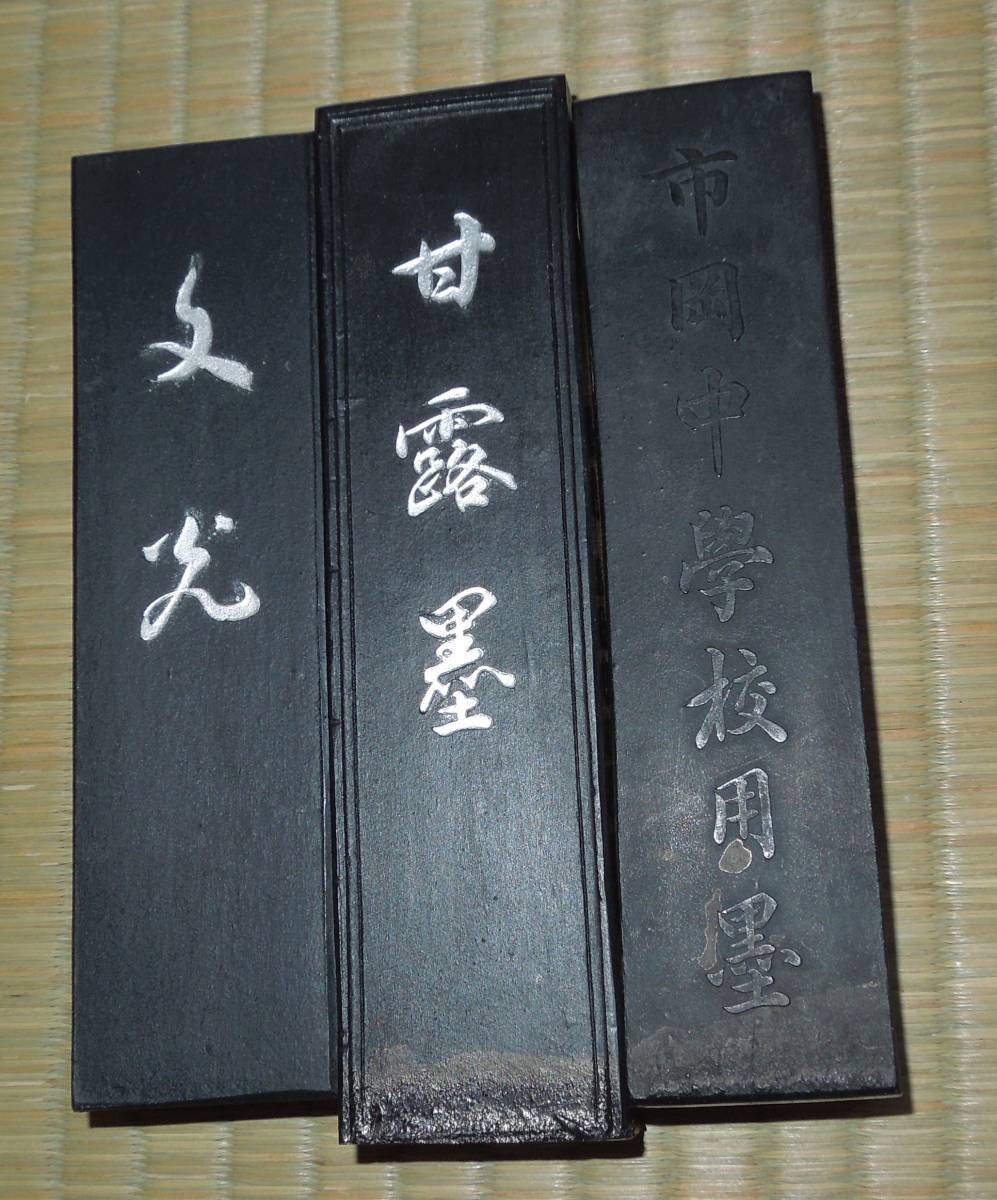 文光
甘露墨
市岡中學校用墨